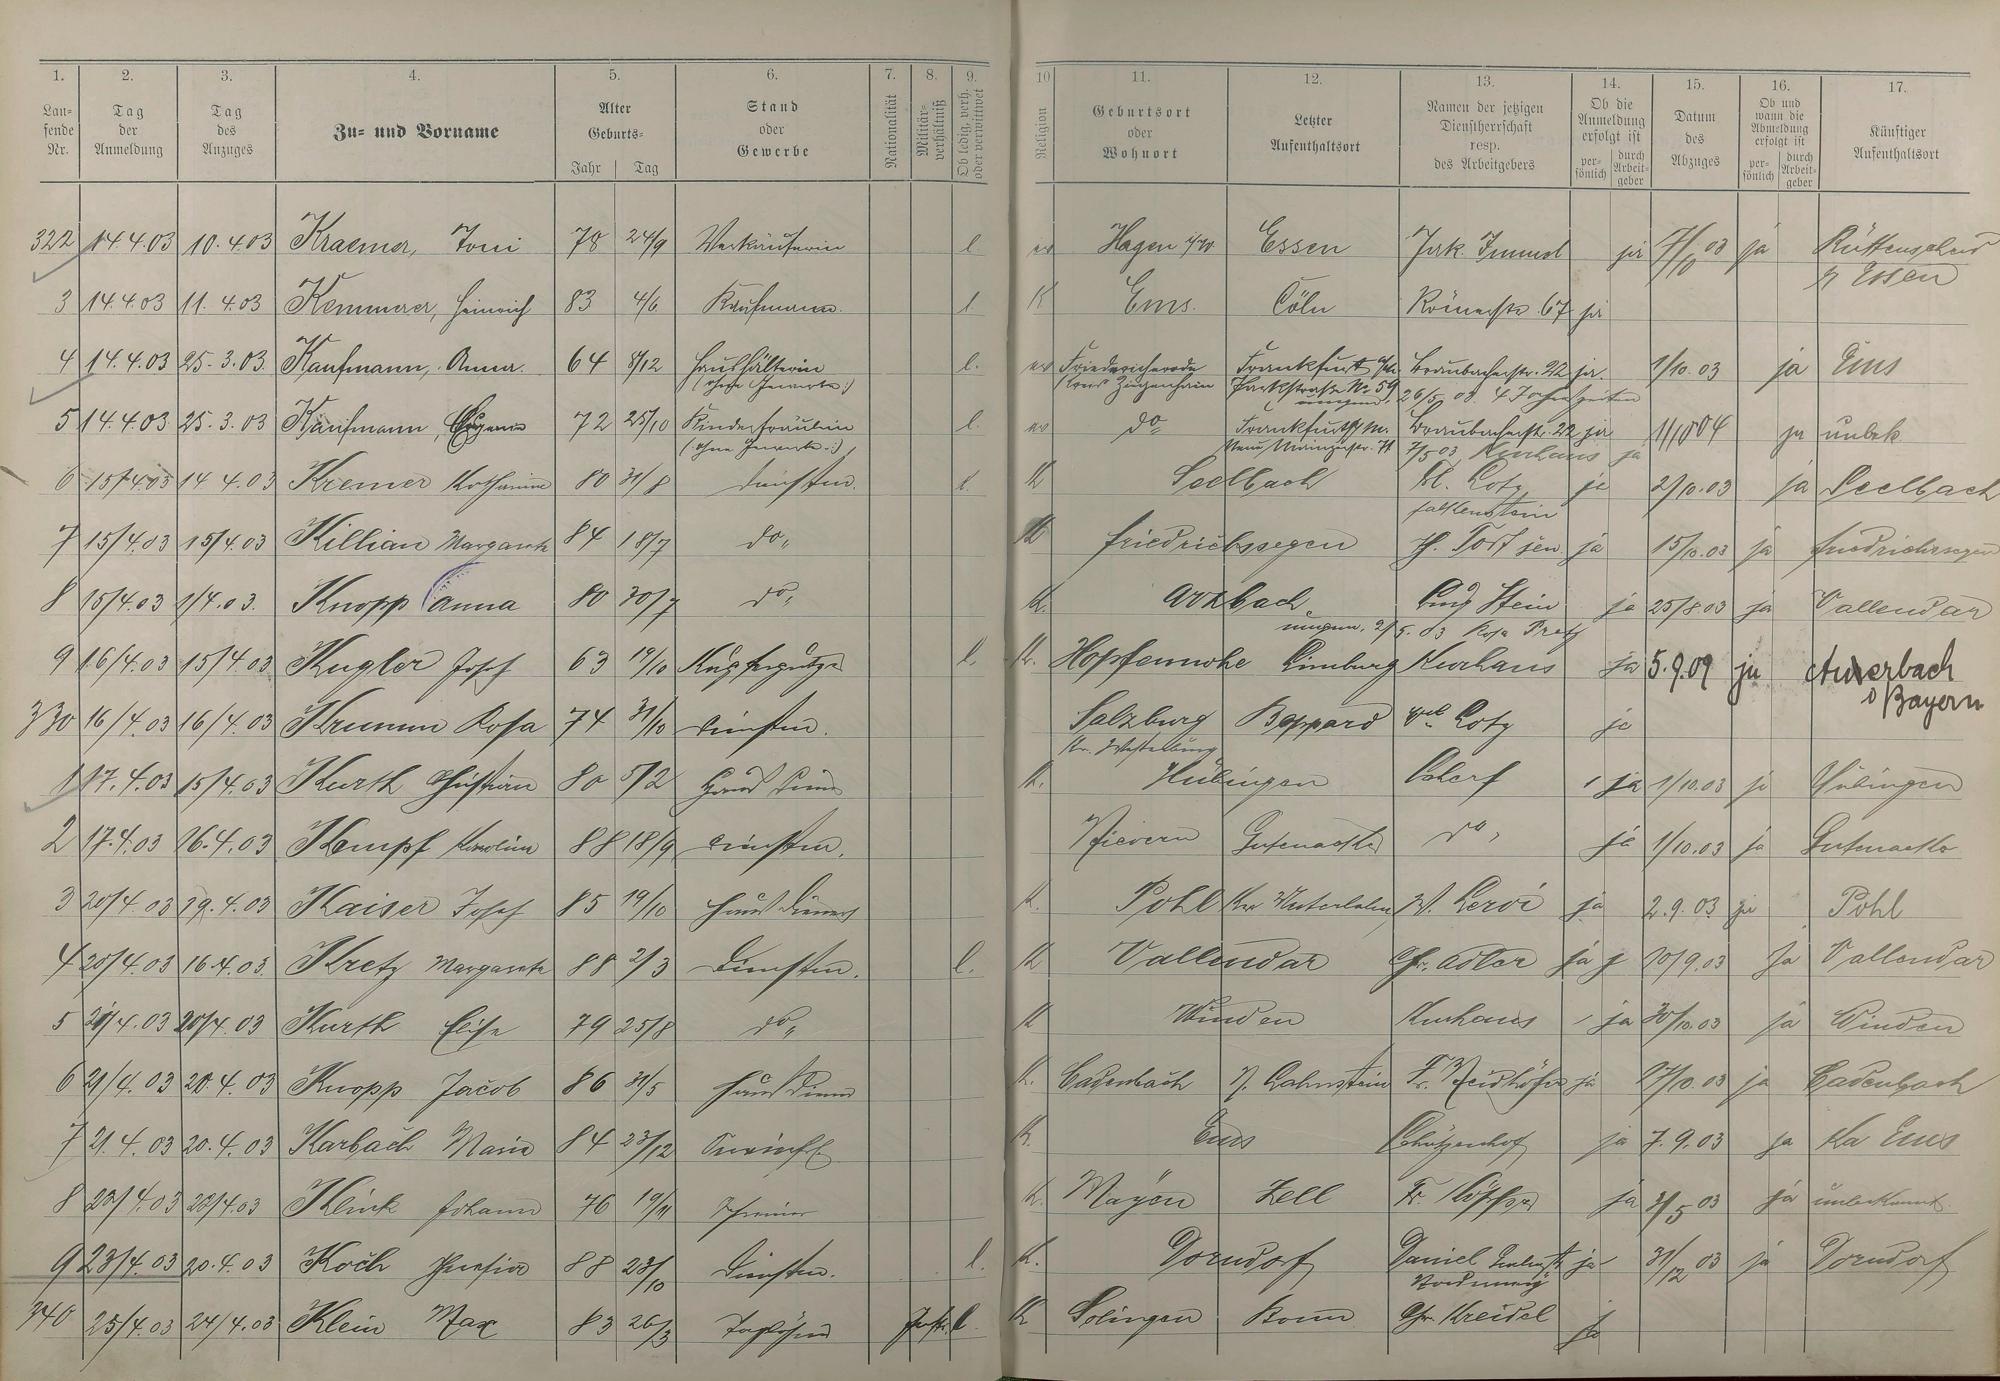 1. 2. 3. 4. 5. 6. 7. 8. 9. 10 11. 12. 13. 14. 15. 16. 17.
Laufende Nr. Tag der Anmeldung Tag des Anzuges Zu- und Vorname Alter Geburts- Jahr Tag Stand oder Gewerbe Nationalität Militärverhältniß Ob ledig, verh. oder verwittwet Religion Geburtsort oder Wohnort Letzter Aufenthaltsort Namen der jetzigen Dienstherrschaft resp. des Arbeitgebers Ob die Anmeldung erfolgt ist persönlich durch Arbeitgeber Datum des Abzuges Ob und wann die Abmeldung erfolgt ist persönlich durch Arbeitgeber Künftiger Aufenthaltsort
322 14.4.03 10.4.03 Kraemer, Toni 78 24/9 Verkäuferin l. ev Hagen i/W Essen Jak. ja 7/10 03 ja Rüttenscheid
b/ Essen
3 14.4.03 11.4.03 Kemmerer, Heinrich 83 4/6 Kaufmann. l. K Ems. Cöln Römerstr. 67 ja
4 14.4.03 25.3.03. Kaufmann, Anna. 64 8/12 Haushälterin l. ev Friedericherode Frankfurt a/M. Braubacherstr. 22 ja. 1/10 03 ja Ems
(ohne Gewerbe:) Kreis Ziegenhain Parkstraße No 59 26/5 03. 4 Jahreszeiten
5 14.4.03 25.3.03 Kaufmann, Eugenie 72 25/10 Kinderfräulein l. ev do Frankfurt a/M. Braubacherstr. 22 ja 1/10 04 ja unbek.
(ohne Gewerbe:) Neue Mainzerstr. 71 7/5 03 Kurhaus ja
6 15/4.03 14.4.03 Kremer Katharina 80 31/8 Dienstm. l. K Seelbach W. Lotz ja 2/10.03 ja Seelbach
Falkenstein
7 15/4.03 15/4.03 Killian Margareta 84 18/7 do „ K Friedrichssegen H. Tost sen. ja 15/10.03 ja Friedrichssegen
8 15/4.03 1/4.03. Knopp Anna 80 30/7 do „ K. Arzbach. Aug. Stein ja 25/8.03 ja Vallendar
2/5. 03
9 16/4.03 15/4.03 Kugler Josef 63 19/10 Kupferputzer l. K. Hopfennohe Limburg Kurhaus ja 5.9.09 ja Auerbach
i/Bayern
330 16/4.03 16/4.03 Krumm Rosa 74 31/10 Dienstm. Salzburg Boppard Lotz ja
Kr. Westerburg
1 17.4.03 15/4.03 Kurth Christian 80 5/2 Hausdiener K. Hübingen ja 1/10.03 ja Hübingen
2 17.4.03 16.4.03 Kempf Karolina 88 18/9 Dienstm. Nievern Gutenacker do „ ja 1/10.03 ja Gutenacker
3 20/4.03 19.4.03 Kaiser Josef 85 19/10 Hausdiener K. Pohl Kr. Unterlahn W. Leroi ja 2.9.03 ja Pohl
4 20/4.03 16.4.03. Kretz Margareta 88 2/3 Dienstm. l. K Vallendar Gr. Adler ja j 10/9.03 ja Vallendar
5 21/4.03 20/4.03 Kurth Elise 79 25/8 do „ K Winden Kurhaus ja 30/10.03 ja Winden
6 21/4.03 20.4.03 Knopp Jacob 86 31/5 Hausdiener K. Cadenbach N. Lahnstein Fr. Neidhöfer ja 17/10.03 ja Cadenbach
7 21.4.03 20.4.03 Karbach Maria 84 23/12 K. Ems Schützenhof ja 7.9.03 ja Ems
8 23/4.03 22/4.03 Klink Johann 76 19/11 Schreiner K. Mayen Zell Fr. ja 3/5 03 ja unbekannt.
9 23/4.03 20.4.03 Koch 88 23/10 Dienstm. l. K. Dorndorf Daniel ja 31/12 03 ja Dorndorf
340 25/4.03 24/4.03 Klein Max 83 26/3 Taglöhner l. K Solingen Bonn Chr. Kreidel ja